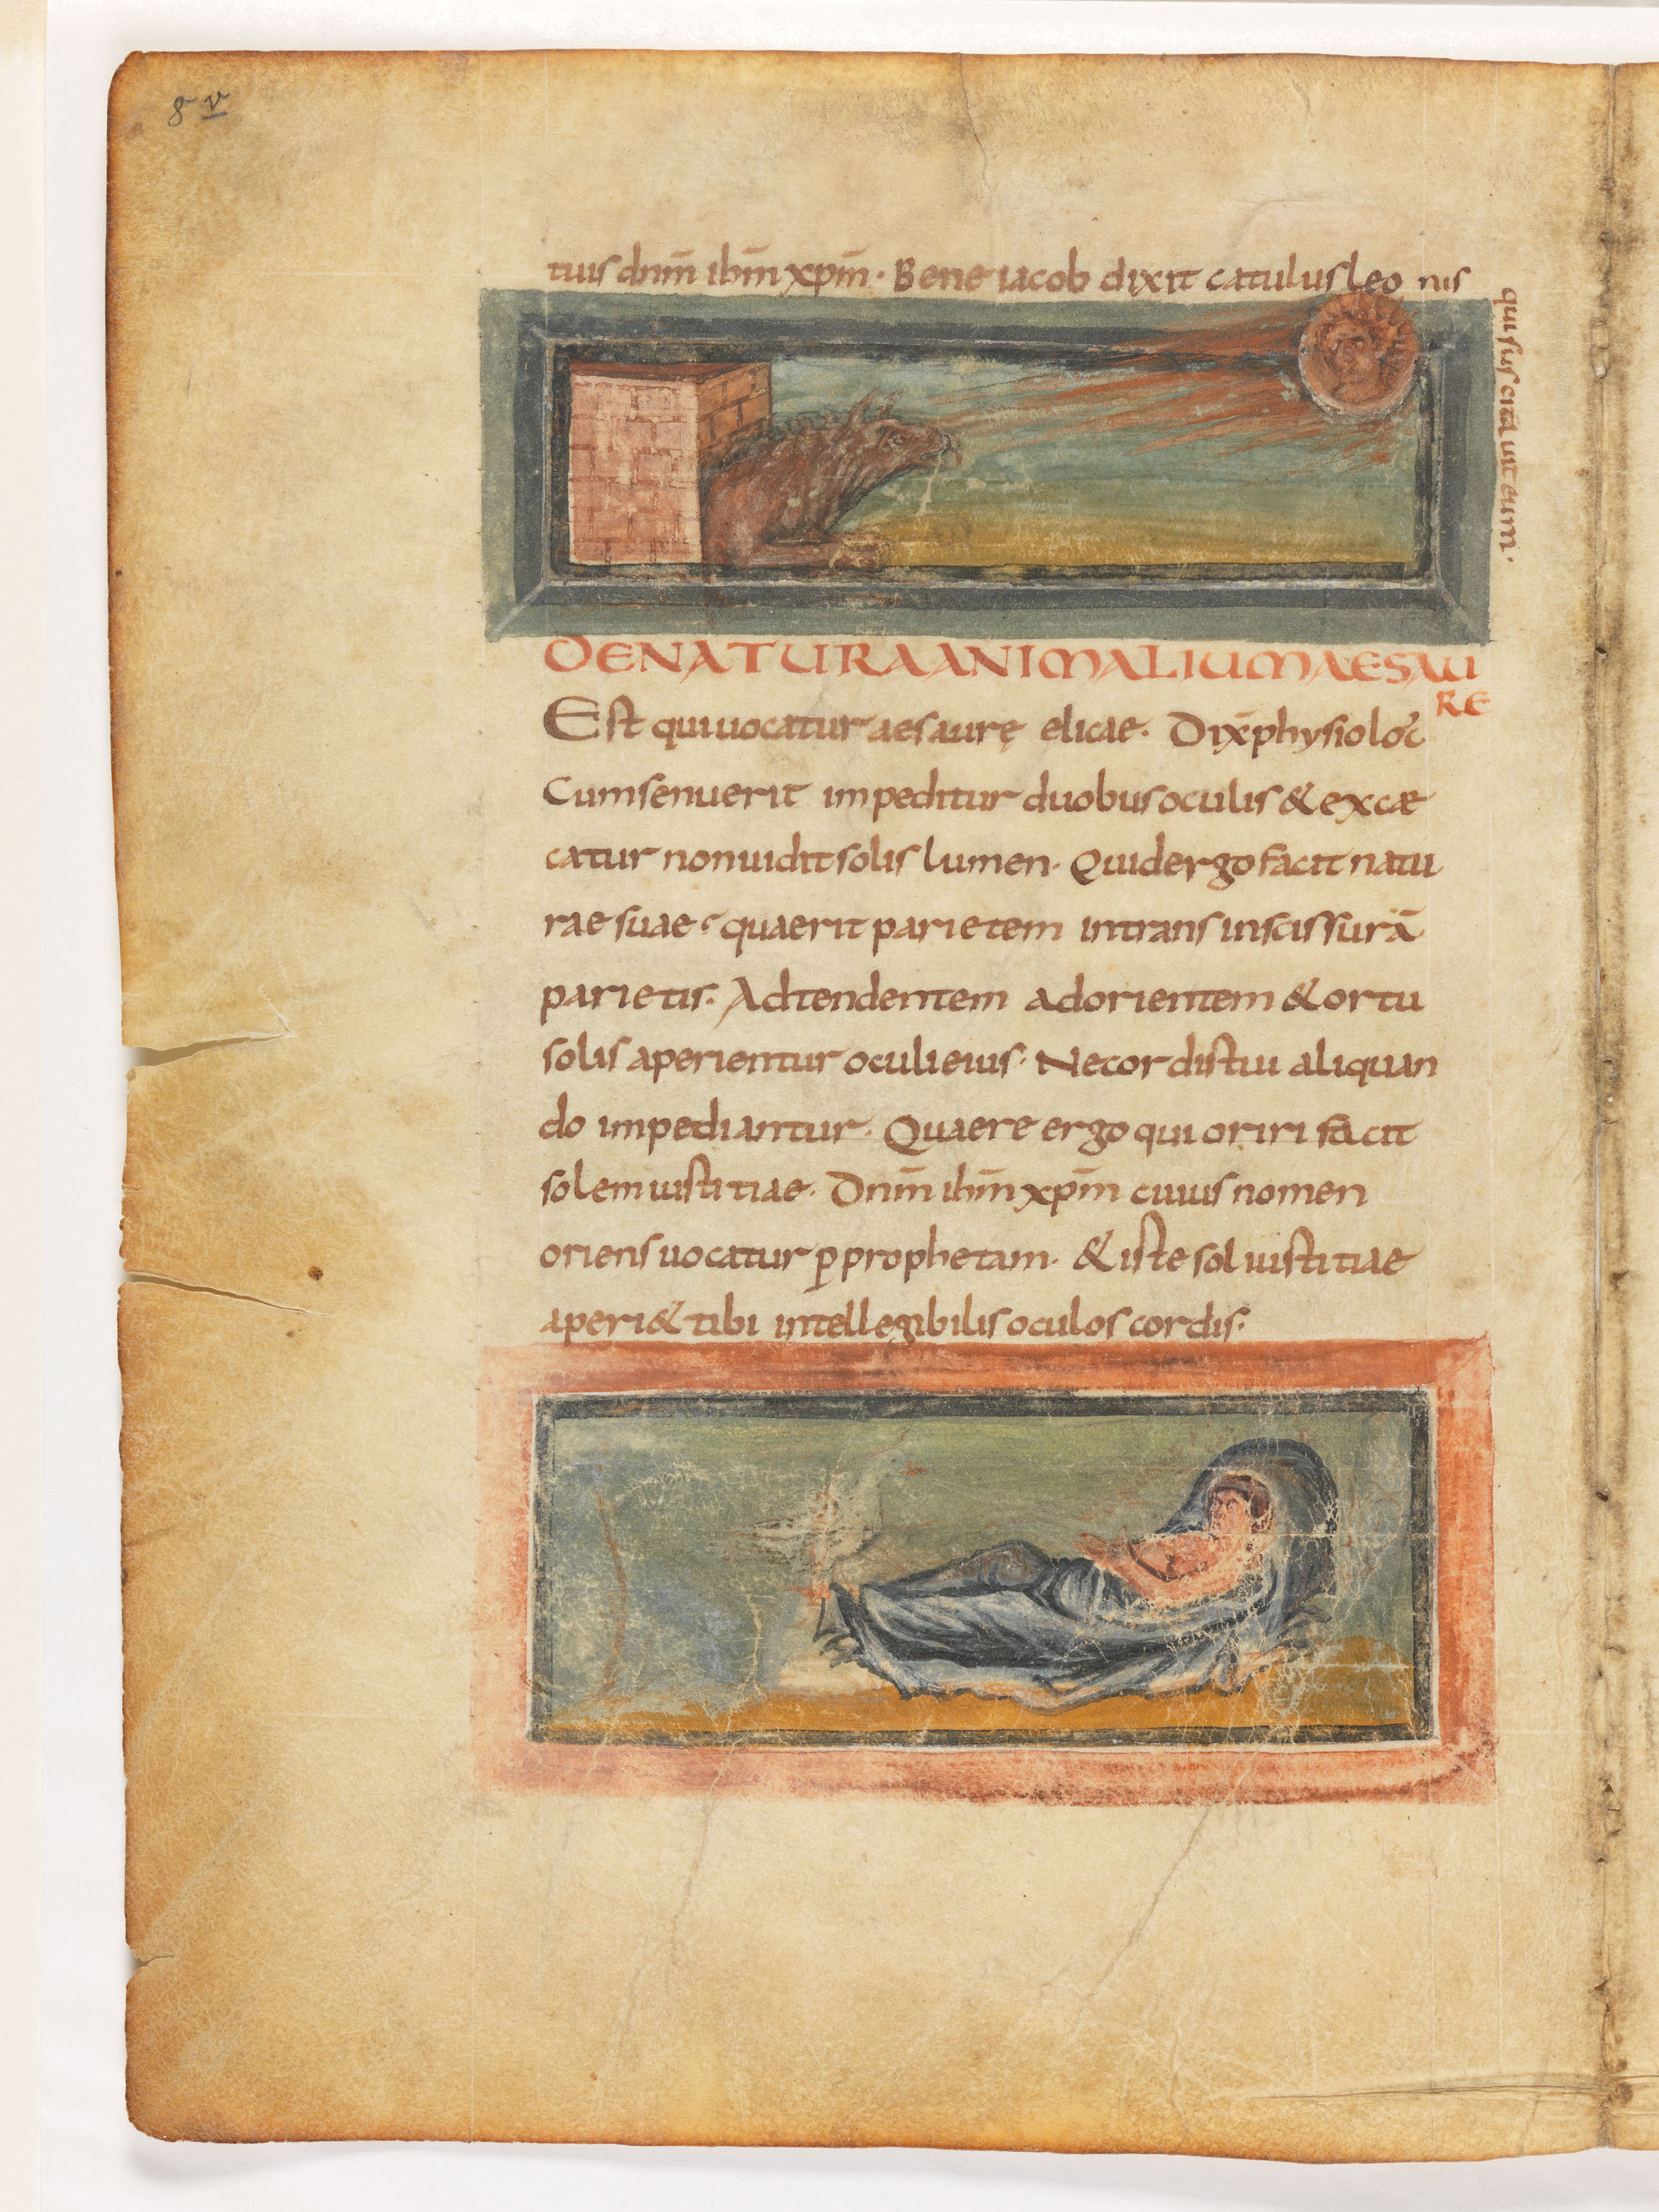 8 v
tuis dnm̄ ihm̄ xpm̄ · Bene iacob dixit catulus leo nis
qui suscitauit eum ·
DE NATURA ANIMALIUM AESAU
RE
Est qui uocatur aesaurę elicae · Dix̄ physioloc̄
Cum senuerit impeditur duobus oculis & excæ
catur non uidit solis lumen · Quid ergo facit natu
rae suae ? quaerit parietem intrans inscissurā
parietis · Adtendentem ad orientem & ortu
solis aperientur oculi eius · Ne cor distui aliquan
do impediantur · Quaere ergo qui oriri facit
solem iustitiae · Dnm̄ ihm̄ xpm̄ cuius nomen
oriens uocatur ꝑ prophetam · & iste sol iustitiae
aperi& tibi intellegibilis oculos cordis ·